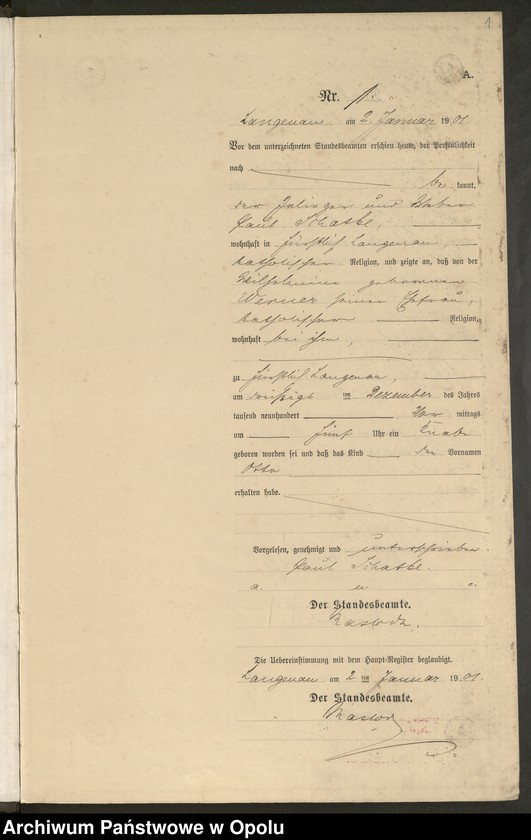 1
A.
Nr. 1.
Langenau am 2. Januar 1901
Vor dem unterzeichneten Standesbeamten erschien heute, der Persönlichkeit
nach
be kannt,
der und
Paul Schatke,
wohnhaft in fürstlich Langenau,
katholischer Religion, und zeigte an, daß von der
Wilhelmine geborenen
Werner seiner Ehefrau,
katholischer Religion,
wohnhaft bei ihm,
zu fürstlich Langenau,
am dreißigs ten Dezember des Jahres
tausend neunhundert Vor mittags
um fünf Uhr ein Knabe
geboren worden sei und daß das Kind den Vornamen
Otto
erhalten habe.
Vorgelesen, genehmigt und unterschrieben.
Paul Schatke.
a. u. s.
Der Standesbeamte.
Die Uebereinstimmung mit dem Haupt-Register beglaubigt.
Langenau am 2 ten Januar 1901.
Der Standesbeamte.
Archiwum Państwowe w Opolu